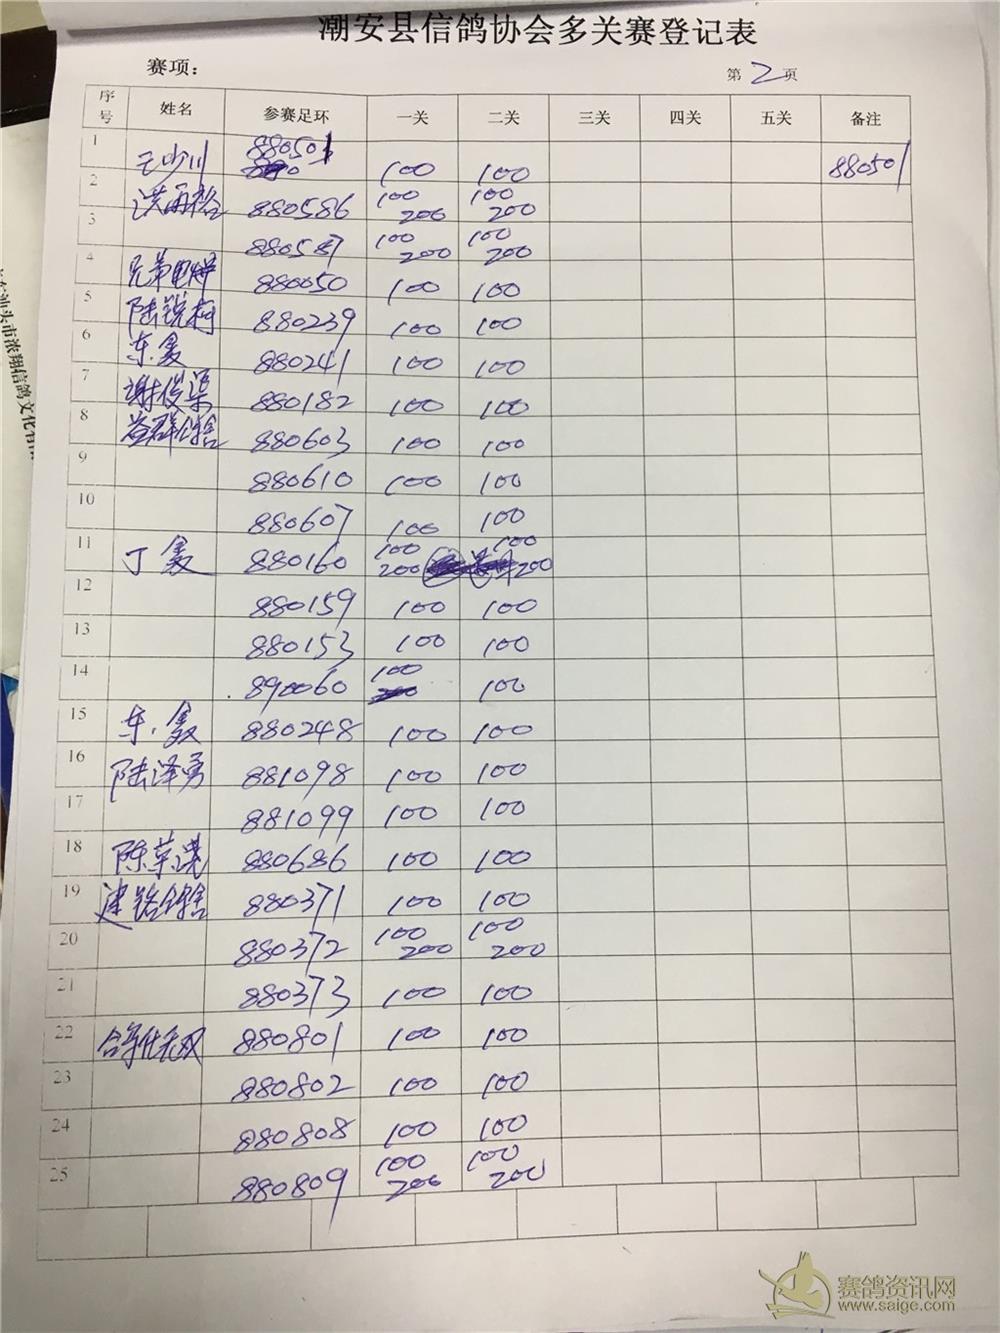 潮安县信鸽协会多关赛登记表
赛项：
第 2 页
序号 姓名 参赛足环 一关 二关 三关 四关 五关 备注
1 王少川 880501 100 100 880501
2 洪再裕 880586 100 200 100 200
3 880587 100 200 100 200
4 兄弟电焊 880050 100 100
5 陆锐柯 880239 100 100
6 东 880241 100 100
7 谢俊渠 880182 100 100
8 益群鸽舍 880603 100 100
9 880610 100 100
10 880607 100 100
11 丁 880160 100 200 100 200
12 880159 100 100
13 880153 100 100
14 890060 100 100
15 东 880248 100 100
16 陆泽勇 881098 100 100
17 881099 100 100
18 陈 880686 100 100
19 建铭鸽舍 880371 100 100
20 880372 100 200 100 200
21 880373 100 100
22 880801 100 100
23 880802 100 100
24 880808 100 100
25 880809 100 200 100 200
汕头市浓翔信鸽文化有
赛鸽资讯网
www.saige.com